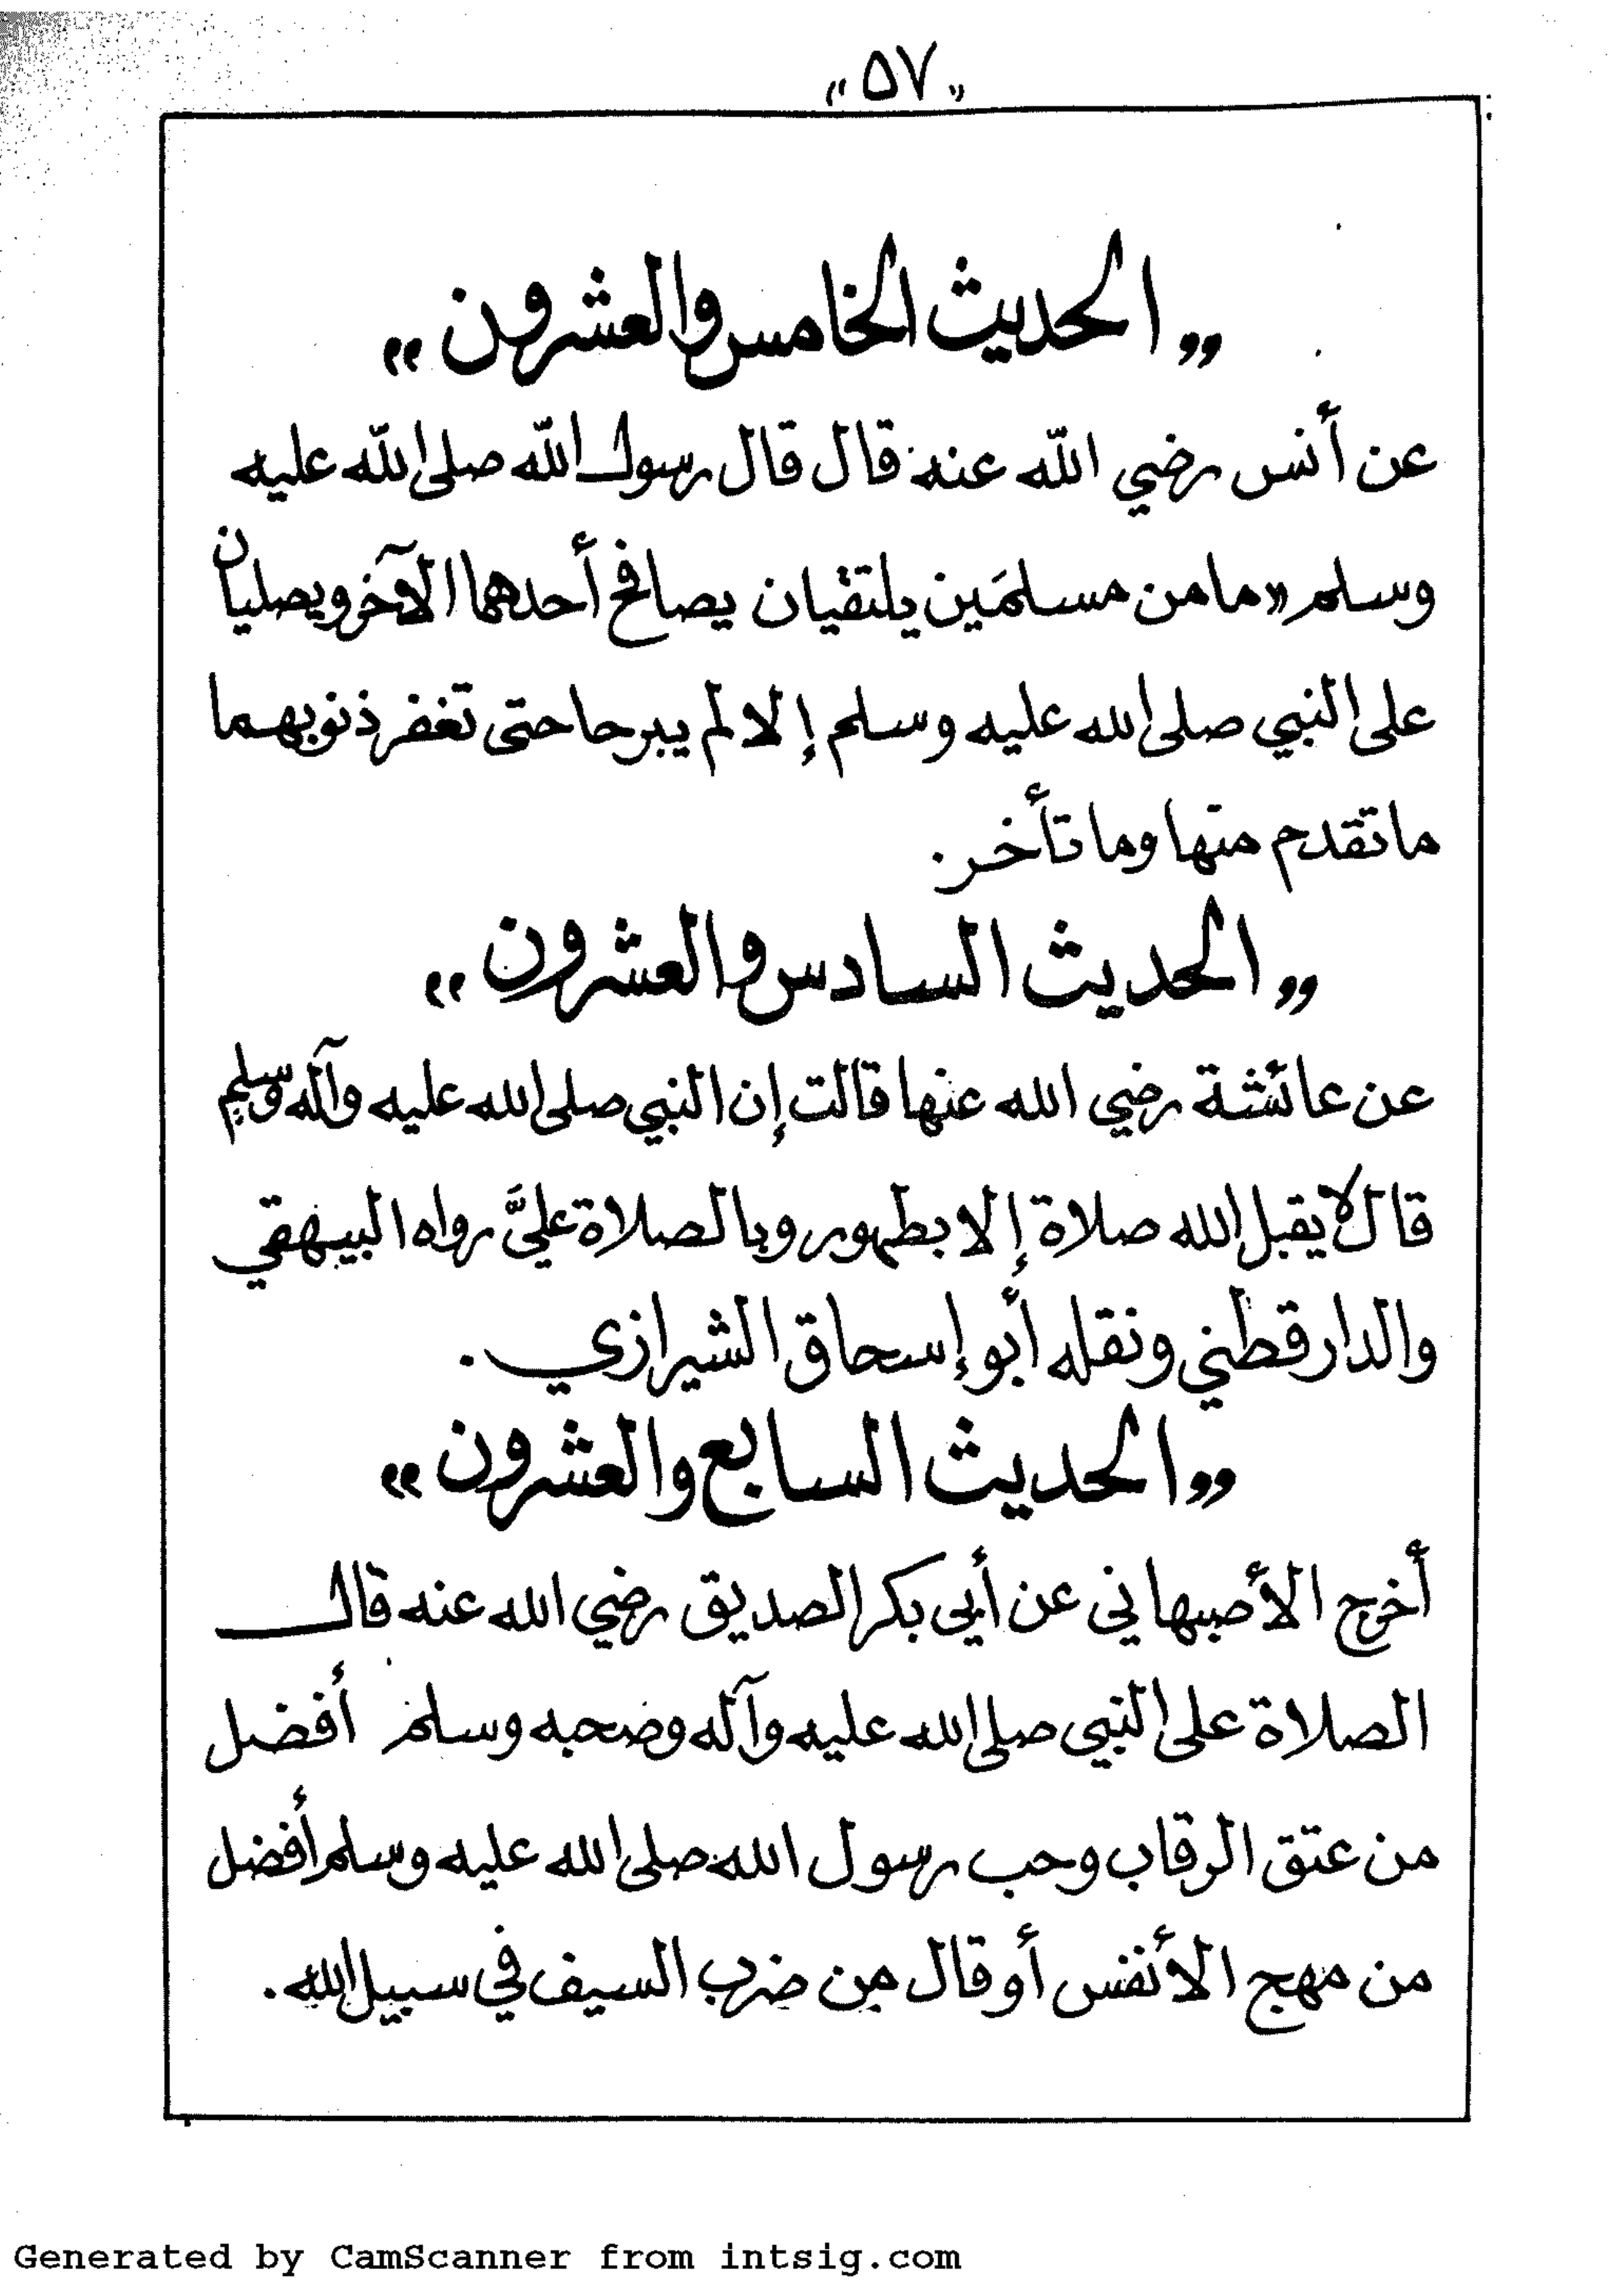 «٥٧»
"الحديث الخامس والعشرون"
عن أنس رضي الله عنه قال قال رسول الله صلى الله عليه
وسلم «ما من مسلمَين يلتقيان يصافح أحدهما الآخر ويصليان
على النبي صلى الله عليه وسلم إلا لم يبرحا حتى تغفر ذنوبهما
ما تقدم منها وما تأخر.
"الحديث السادس والعشرون"
عن عائشة رضي الله عنها قالت إن النبي صلى الله عليه وآله وسلم
قال لا يقبل الله صلاة إلا بطهور وبالصلاة عليَّ رواه البيهقي
والدارقطني ونقله أبو إسحاق الشيرازي.
"الحديث السابع والعشرون"
أخرج الأصبهاني عن أبي بكر الصديق رضي الله عنه قال
الصلاة على النبي صلى الله عليه وآله وصحبه وسلم أفضل
من عتق الرقاب وحب رسول الله صلى الله عليه وسلم أفضل
من مهج الأنفس أو قال من ضرب السيف في سبيل الله.
Generated by CamScanner from intsig.com